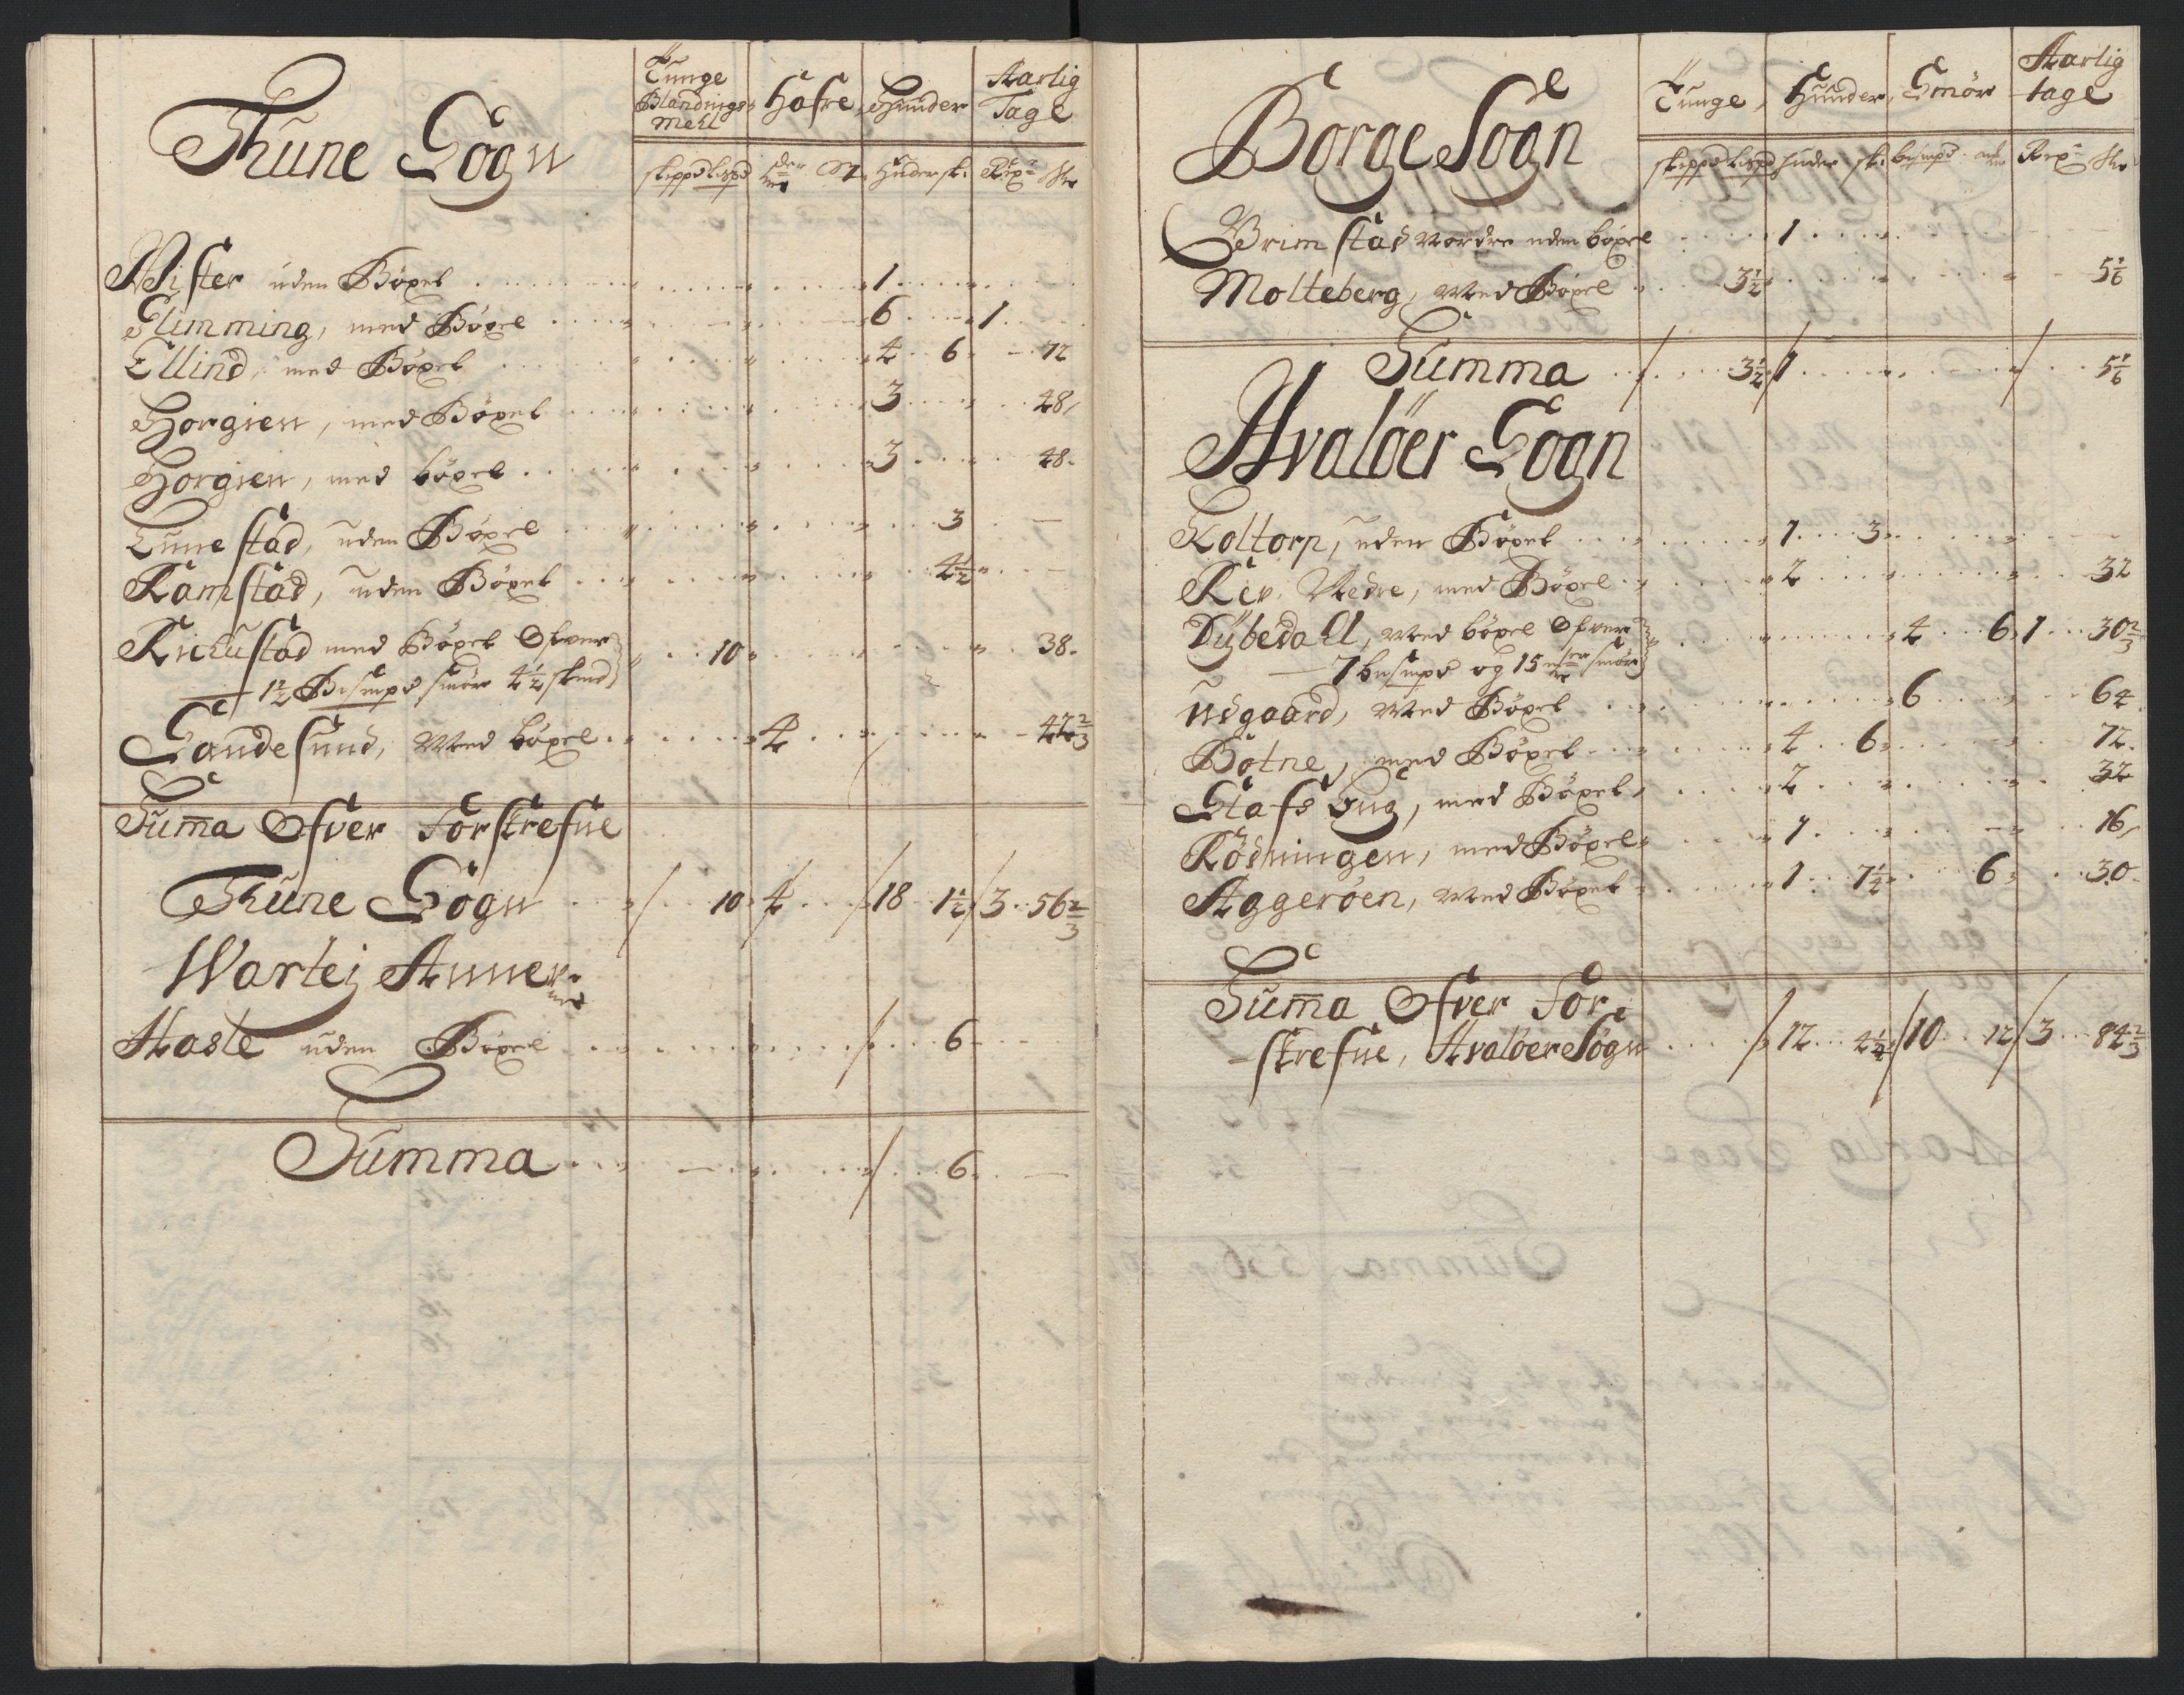 Thune Sogn
Tunge Blandings Mehl | Hafre | Huuder | Aarlig Tage
skippd Lispd | | Huder sk: | Rixdr Sk
Wister uden Böxel 1
Glimming, med Böxel 6 1
Ellind, med Böxel 4 6 72
Horgien, med Böxel 3 48
Horgien, med böxel 3 48
Lunestad, uden Böxel 3
Ramstad, uden Böxel 4½
med Böxel Ofver 10 38
1½ Bismpd smör 4½ skind
Sandesund, Med böxel 4 42⅔
Sum̄a Ofver Forskrefne
Thune Sogn 10 4 18 1½ 3 56⅔
Wartej Annex
Hasle uden Böxel 6
Summa 6
Borge Sogn
Tunge | Huuder | Smör | Aarlig tage
skippd Lispd | huder sk: | bismpd | Rixdr Sk
Grimstad Nordre uden böxel 1
Molteberg, Med Böxel 3½ 5⅙
Summa 3½ 1 5⅙
Hvalöer Sogn
Koltorp, uden Böxel 1 3
Rev Nedre, med Böxel 2 32
Dybedall, Med böxel Ofver 4 6 1 30⅔
7 bismpd og 15 mrk smör
Udgaard, Med Böxel 6 64
Botne, med Böxel 4 6 72
Olafs Bug, med Böxel 2 32
Rödningen, med Böxel 1 16
Aggeröen, Med Böxel 1 7½ 6 30
Sum̄a Ofver For
skrefne, Hvalöer Sogn 12 4½ 10 12 3 84⅔